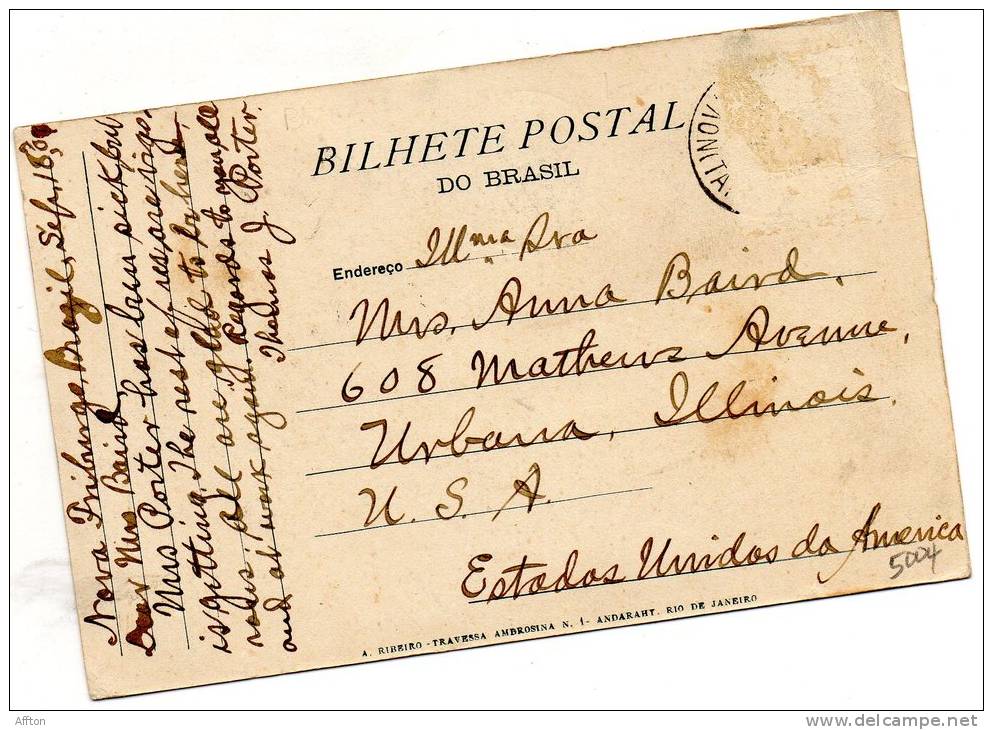 BILHETE POSTAL
DO BRASIL
Endereço Illma. Sra
Mrs. Anna Baird,
608 Mathews Avenue,
Urbana, Illinois.
U. S. A.
Estados Unidos da America
5004
A. RIBEIRO - TRAVESSA AMBROSINA N. 1 - ANDARAHY. RIO DE JANEIRO
Nova Friburgo, Brazil, Sep. 18,
Dear Mrs Baird,
Mrs Porter has been sick but
is getting. The rest of us are vigo-
rous. All are glad to be here
and at work again. Regards to you all
Thomas J. Porter.
Affton
www.delcampe.net